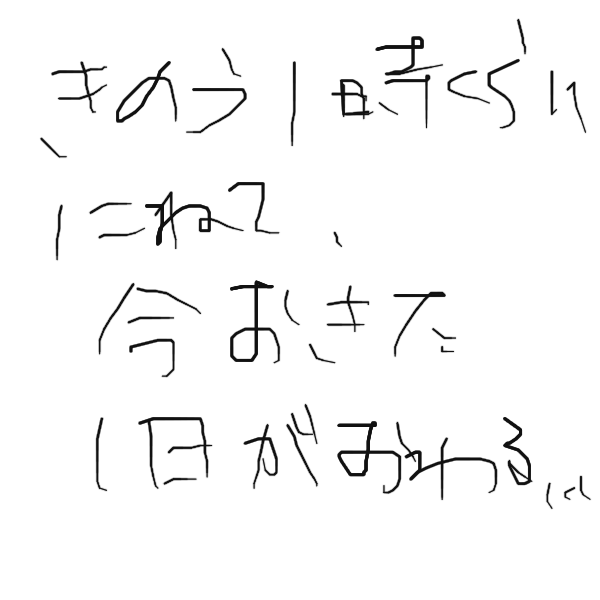 きのう1時くらい
にねて、
今おきた
1日がおわる...